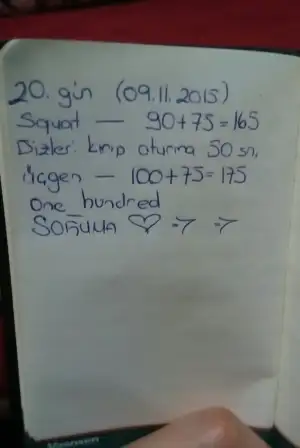 20. gün (09.11.2015)
Squat — 90+75=165
Dizler kırıp oturma 50 sn,
Üçgen — 100+75=175
One_hundred
SOĞUMA ♡